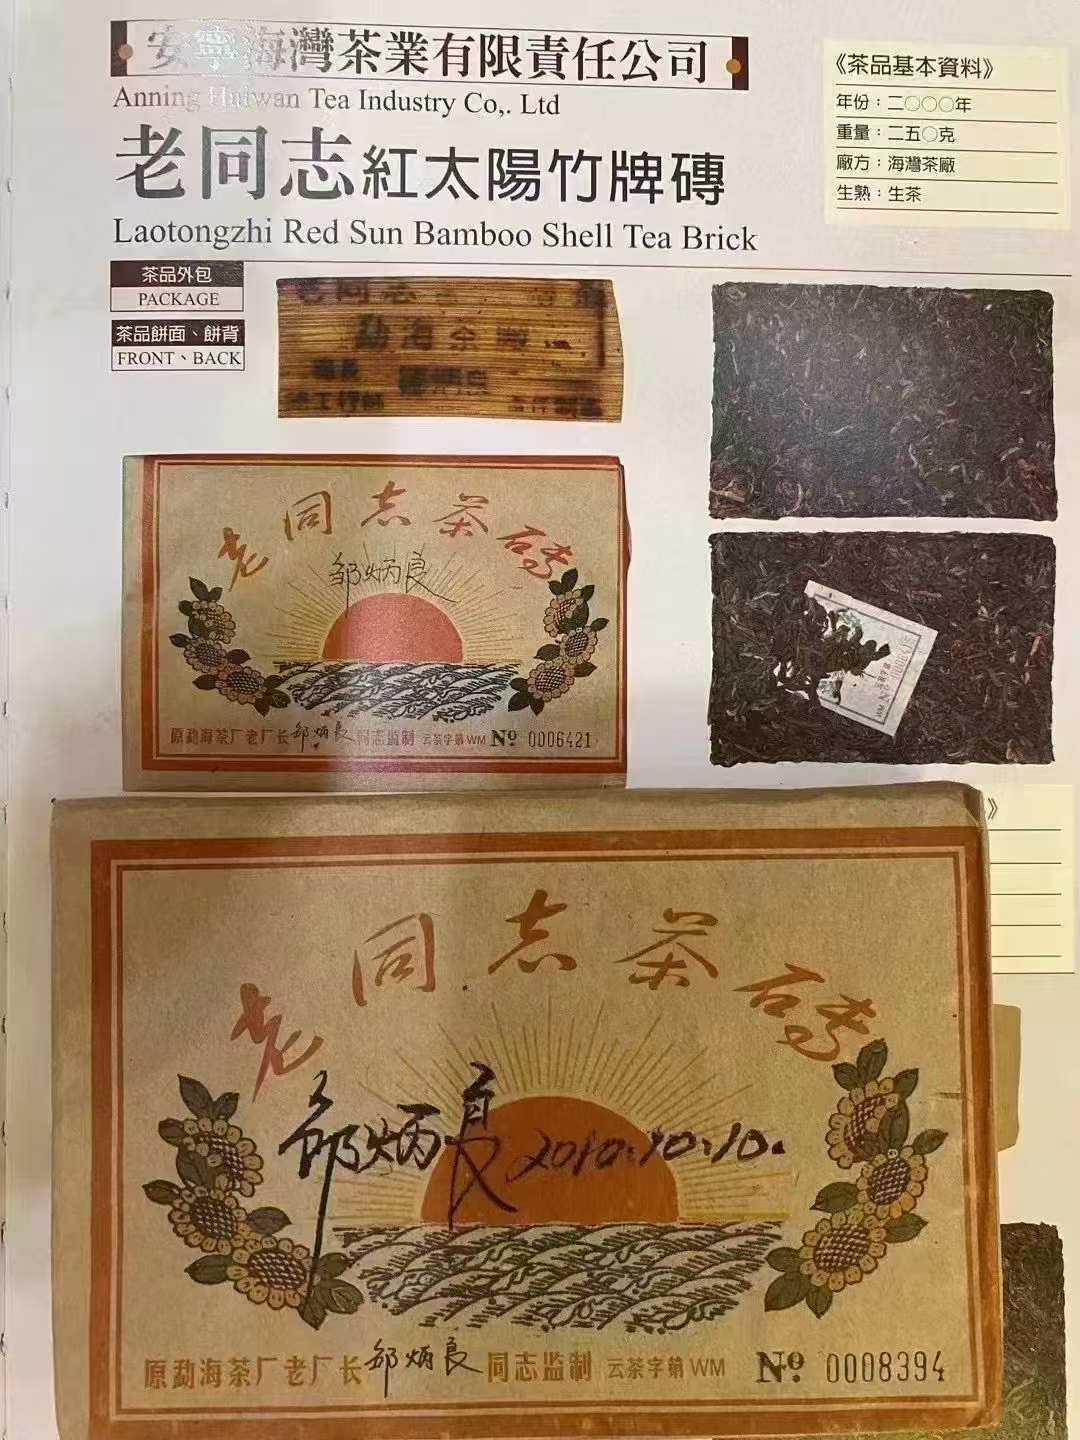 安寧海灣茶業有限責任公司
Anning Haiwan Tea Industry Co,. Ltd
老同志紅太陽竹牌磚
Laotongzhi Red Sun Bamboo Shell Tea Brick
《茶品基本資料》
年份：二〇〇〇年
重量：二五〇克
廠方：海灣茶廠
生熟：生茶
茶品外包
PACKAGE
茶品餅面、餅背
FRONT、BACK
老同志
勐海茶廠
老同志茶砖
邹炳良
原勐海茶厂老厂长邹炳良同志监制 云茶字第WM № 0006421
》
老同志茶砖
邹炳良 2010.10.10.
原勐海茶厂老厂长邹炳良同志监制 云茶字第WM № 0008394